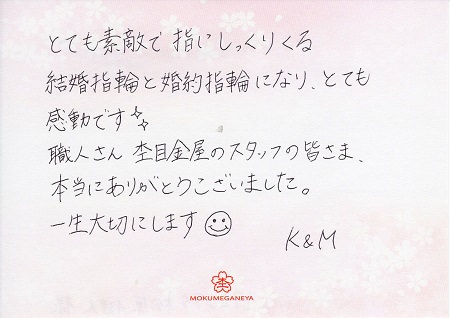 とても素敵で指にしっくりくる
結婚指輪と婚約指輪になり、とても
感動です
職人さん 杢目金屋のスタッフの皆さま、
本当にありがとうございました。
一生大切にします
K&M
MOKUMEGANEYA